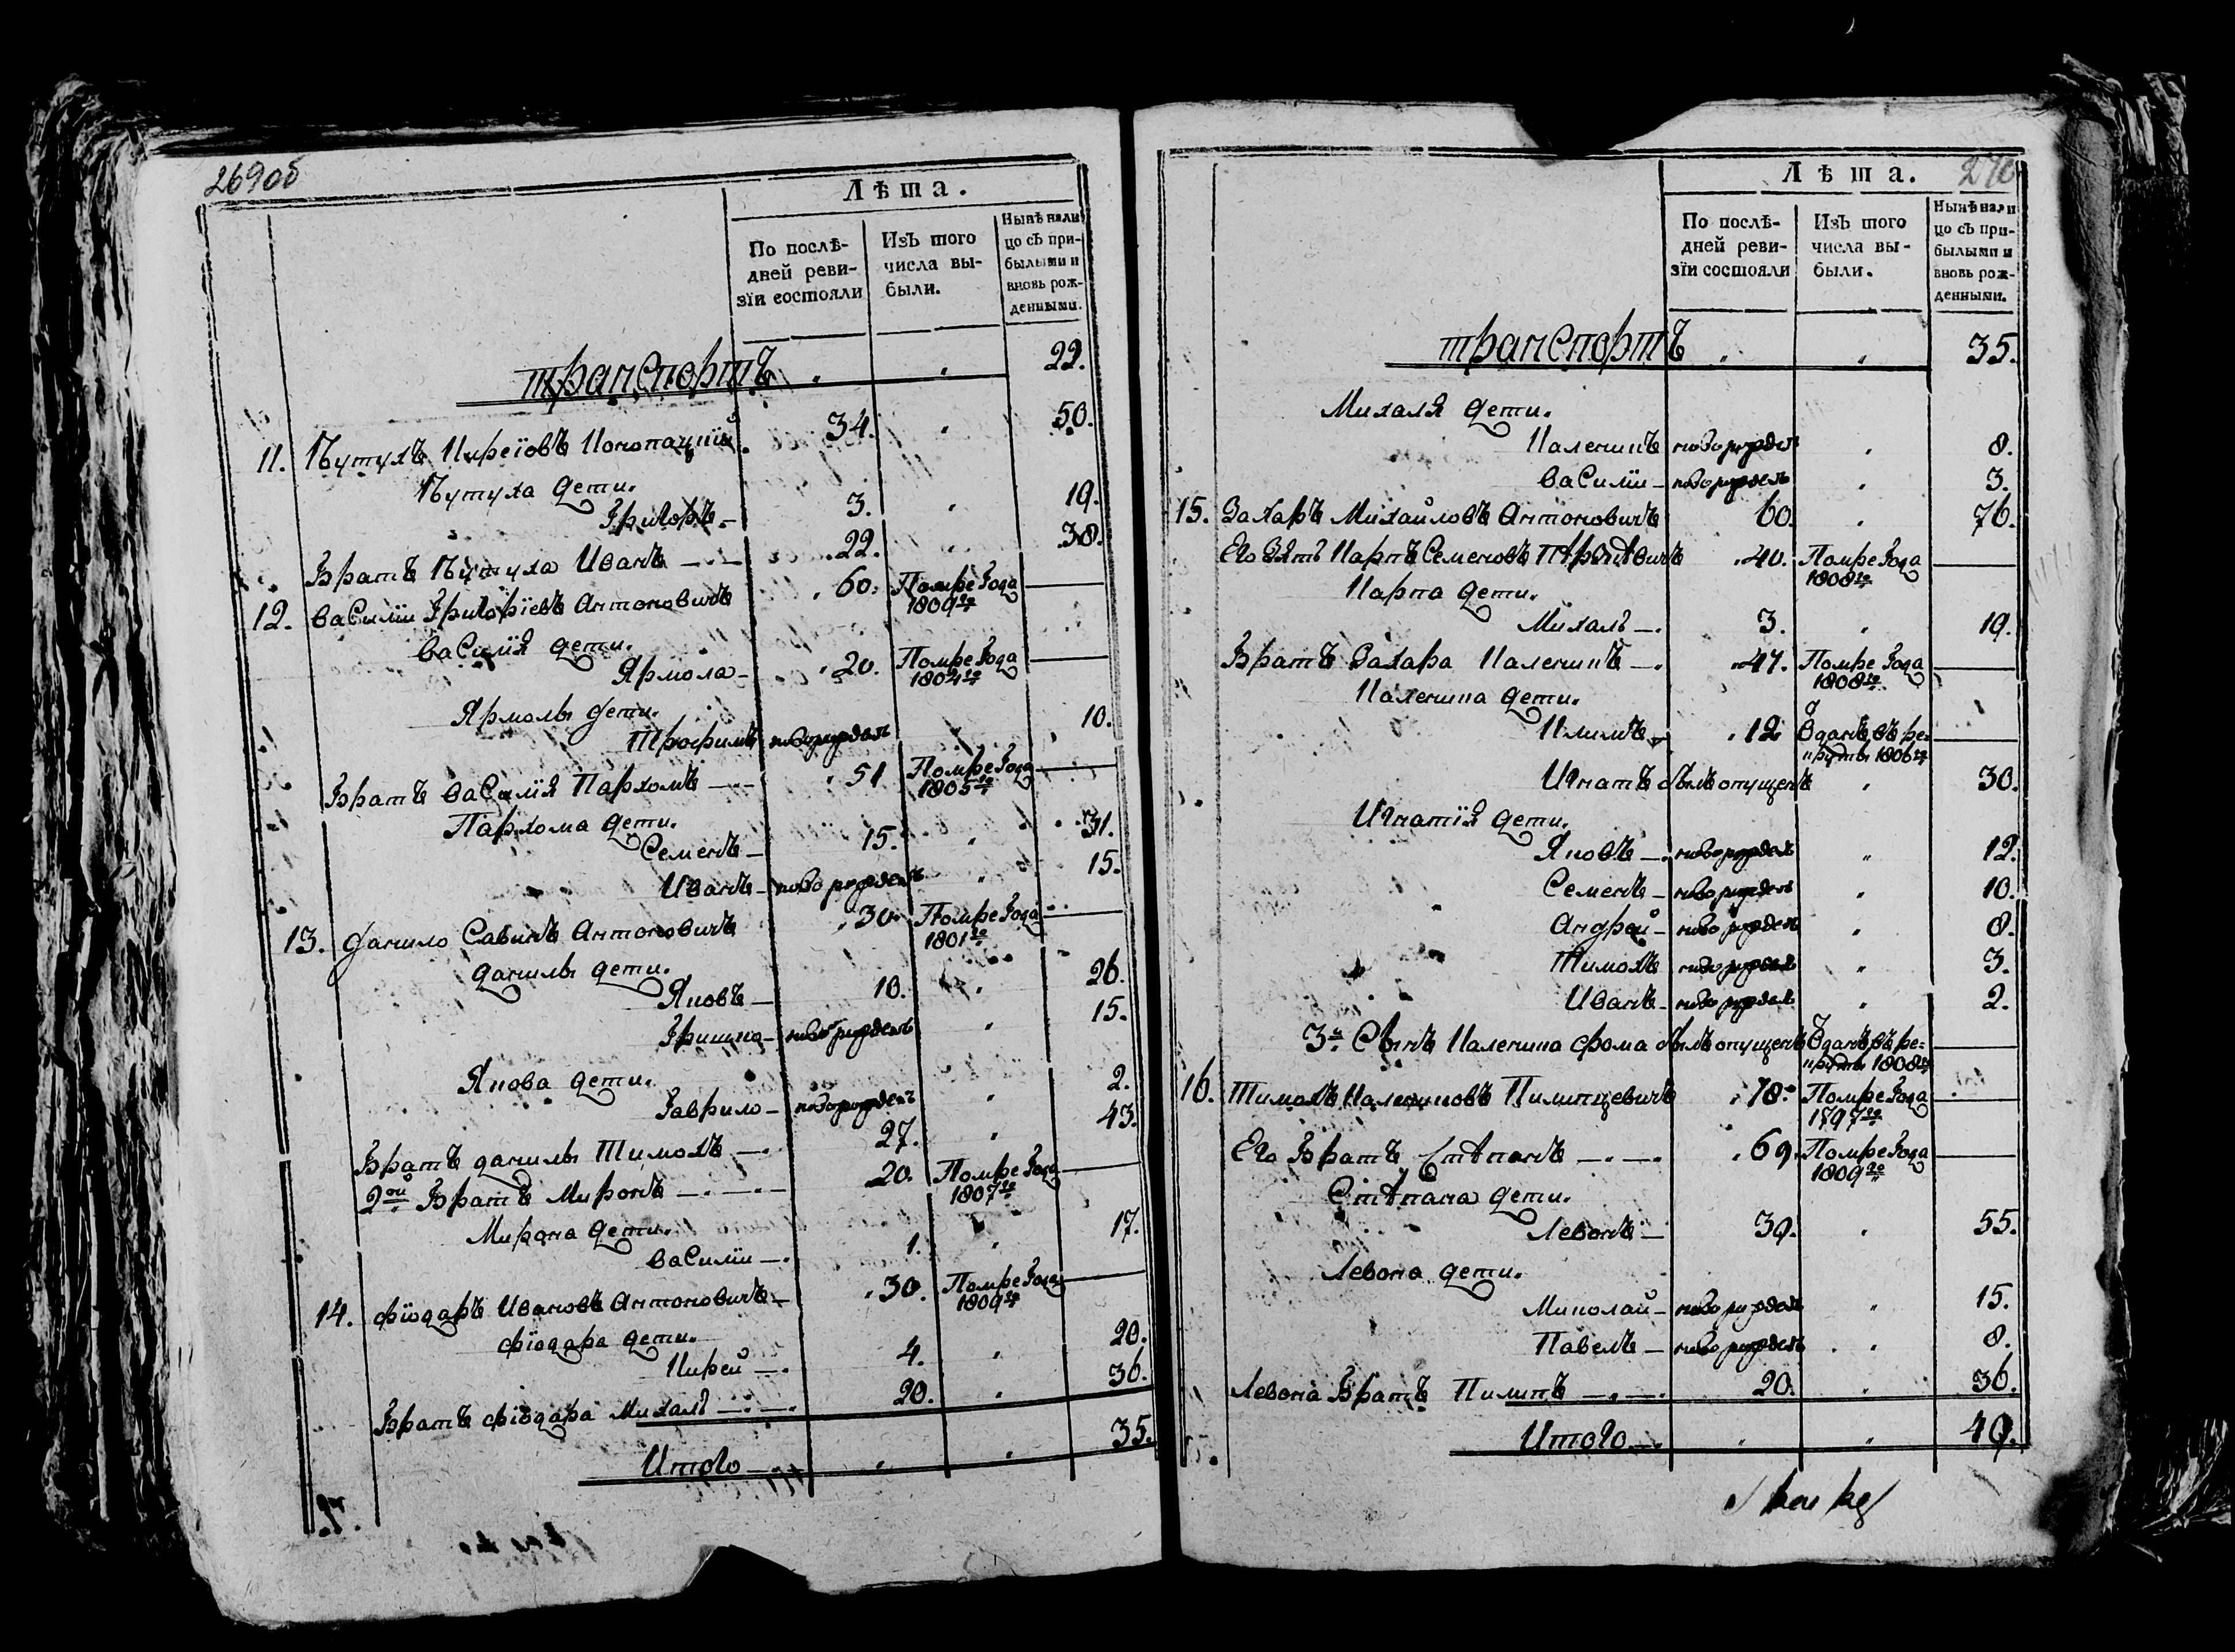 269об
Лѣта.
По послѣ-
дней реви-
зїи состояли
Изъ того
числа вы-
были.
Нынѣ нали
цо съ при-
былыми и
вновь рож-
денными.
транспортъ . . 22.
11. Кирѣіовъ Конопацкій 34. . 50.
дети.
Григоръ 3. . 19.
Братъ Иванъ 22. . 38.
12. Василіи Григоріевъ Антоновичъ 60. Помре Года
1809го
Василія дети.
Ярмола 20. Помре Года
1804го
Ярмолы дети.
Трофимъ новорожден . 10.
Братъ Василія Пархомъ 51 Помре Года
1805го
Пархома дети.
Семенъ 15. . 31.
Иванъ новорожденъ . 15.
13. Данило Савинъ Антоновичъ 30. Помре Года
1801го
Данилы дети.
Яковъ 10. . 26.
Гришко новорожденъ . 15.
Якова дети.
Гаврило новорожденъ . 2.
Братъ Данилы Тимохъ 27. . 43.
2ой Братъ Миронъ 20. Помре Года
1807го
Мирона дети.
Василіи 1. . 17.
14. Фіодаръ Ивановъ Антоновичъ 30. Помре Года
1809го
Фіодара дети.
Кирей 4. . 20.
Братъ Фіодара Михалъ 20. . 36.
Итого . . 35.
270
Лѣта.
По послѣ-
дней реви-
зїи состояли
Изъ того
числа вы-
были.
Нынѣ нали
цо съ при-
былыми и
вновь рож-
денными.
транспортъ . . 35.
Михаля дети.
Каленикъ новорожден . 8.
Василіи новорожденъ . 3.
15. Захаръ Михайловъ Антоновичъ 60. . 76.
Его Зять Карпъ Семеновъ 40. Помре Года
1808го
Карпа дети.
Михалъ 3. . 19.
Братъ Захара Каленикъ 47. Помре Года
1808го
Каленика дети.
Климъ 12 Отданъ въ ре=
круты 1806го
Игнатъ былъ опущенъ . 30.
Игнатія дети.
Яковъ новорожденъ " 12.
Семенъ новорожденъ " 10.
Андрей новорожденъ . 8.
Тимохъ новорожденъ " 3.
Иванъ новорожденъ " 2.
3й Сынъ Каленика Фома былъ опущенъ Отданъ въ ре=
круты 1808го
16. Тимохъ Калениковъ Пилипцевичъ 78. Помре Года
1797го
Его Братъ Стѣпанъ 69. Помре Года
1809го
Стѣпана дети.
Левонъ 39. . 55.
Левона дети.
Миколай новорожденъ " 15.
Павелъ новорожденъ . 8.
Левона Братъ Пилипъ 20. . 36.
Итого . " 49.